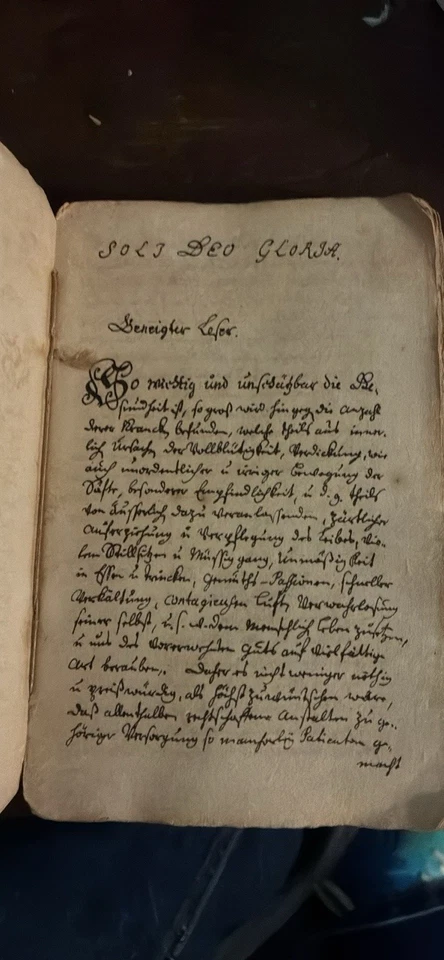 SOLI DEO GLORIA.
Geneigter Leser.
So wichtig und unschätzbar die Ge-
sundheit ist, so groß wird hingegen die Anzahl
derer Krancken befunden, welche theils aus inner-
lich Ursachen der Vollblütigkeit, Verdickung, wie
auch unordentlicher u. irriger Bewegung der
Säfte, besonderer Empfindlichkeit, u. d. g. theils
von äusserlich dazu veranlassenden, zärtlicher
Auferziehung u. Verpflegung des Leibes, vie-
lem Stillsitzen u. Müssiggang, Unmäßigkeit
in Essen u. trincken, Gemüths-Passionen, schneller
Verkältung, contagieusen Luft, Verwahrlosung
seiner selbst, u. s. w. dem Menschlich Leben zusetzen,
u. uns des vorerwehnten Guts auf vielfältige
Art berauben. Daher es nicht weniger nöthig
u. preißwürdig, als höchst zu wüntschen wäre,
daß allenthalben rechtschaffene Anstalten zu ge-
höriger Versorgung so mancherley Patienten ge-
macht